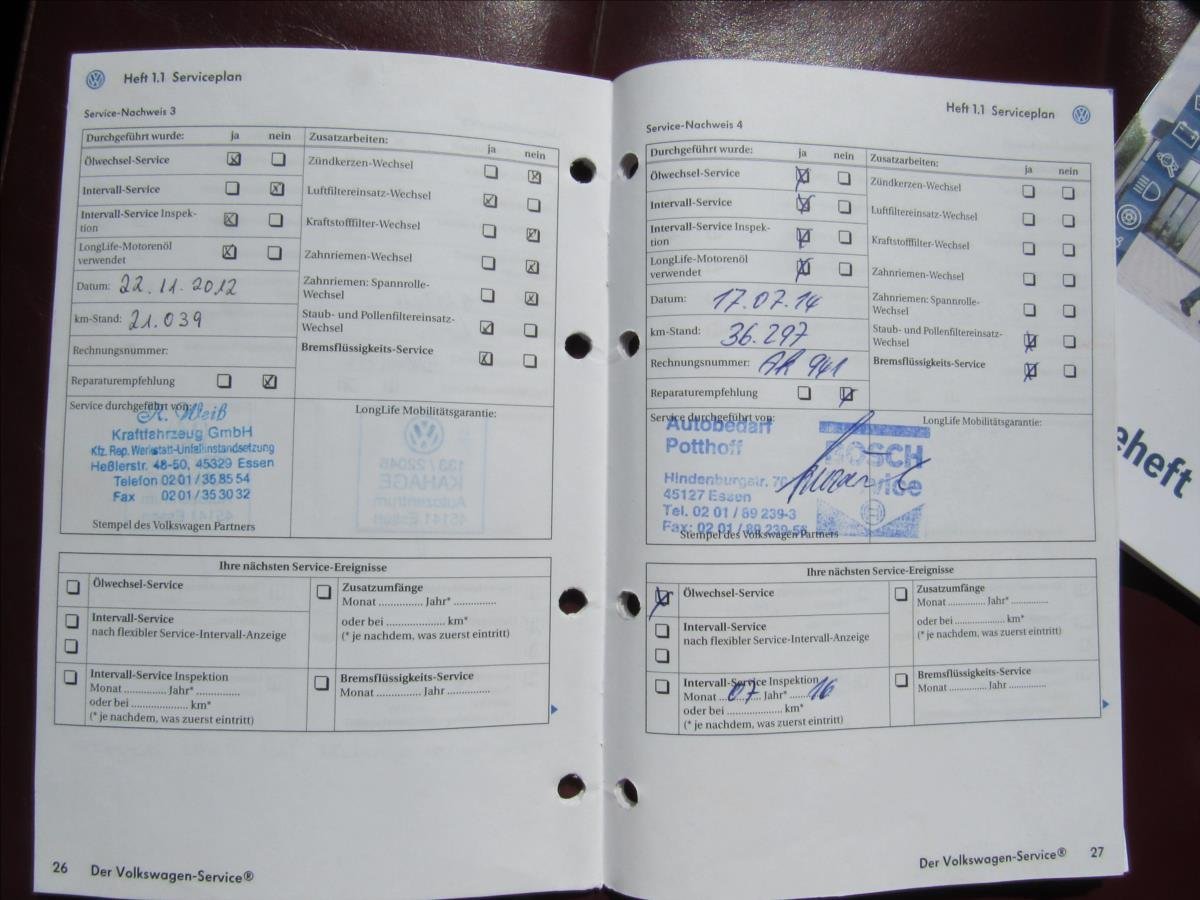 Heft 1.1 Serviceplan
Service-Nachweis 3
Durchgeführt wurde: ja nein
Ölwechsel-Service
Intervall-Service
Intervall-Service Inspek-
tion
LongLife-Motorenöl
verwendet
Datum: 22.11.2012
km-Stand: 21.039
Rechnungsnummer:
Reparaturempfehlung
Zusatzarbeiten: ja nein
Zündkerzen-Wechsel
Luftfiltereinsatz-Wechsel
Kraftstofffilter-Wechsel
Zahnriemen-Wechsel
Zahnriemen: Spannrolle-
Wechsel
Staub- und Pollenfiltereinsatz-
Wechsel
Bremsflüssigkeits-Service
Service durchgeführt von:
A. Weiß
Kraftfahrzeug GmbH
Kfz. Rep. Werkstatt-Unfallinstandsetzung
Heßlerstr. 48-50, 45329 Essen
Telefon 02 01 / 35 85 54
Fax 02 01 / 35 30 32
Stempel des Volkswagen Partners
LongLife Mobilitätsgarantie:
Ihre nächsten Service-Ereignisse
Ölwechsel-Service
Intervall-Service
nach flexibler Service-Intervall-Anzeige
Intervall-Service Inspektion
Monat .............. Jahr* ..............
oder bei .................... km*
(* je nachdem, was zuerst eintritt)
Zusatzumfänge
Monat .............. Jahr* ..............
oder bei .................... km*
(* je nachdem, was zuerst eintritt)
Bremsflüssigkeits-Service
Monat .............. Jahr ..............
26 Der Volkswagen-Service®
Heft 1.1 Serviceplan
Service-Nachweis 4
Durchgeführt wurde: ja nein
Ölwechsel-Service
Intervall-Service
Intervall-Service Inspek-
tion
LongLife-Motorenöl
verwendet
Datum: 17.07.14
km-Stand: 36.297
Rechnungsnummer: AR 941
Reparaturempfehlung
Zusatzarbeiten: ja nein
Zündkerzen-Wechsel
Luftfiltereinsatz-Wechsel
Kraftstofffilter-Wechsel
Zahnriemen-Wechsel
Zahnriemen: Spannrolle-
Wechsel
Staub- und Pollenfiltereinsatz-
Wechsel
Bremsflüssigkeits-Service
Service durchgeführt von:
Autobedarf
Potthoff
Hindenburgstr.
45127 Essen
Tel. 02 01 / 89 239-3
Fax: 02 01 / 89 239-56
BOSCH
Service
Stempel des Volkswagen Partners
LongLife Mobilitätsgarantie:
Ihre nächsten Service-Ereignisse
Ölwechsel-Service
Intervall-Service
nach flexibler Service-Intervall-Anzeige
Intervall-Service Inspektion
Monat ... 07 ... Jahr* ... 16
oder bei .................... km*
(* je nachdem, was zuerst eintritt)
Zusatzumfänge
Monat .............. Jahr* ..............
oder bei .................... km*
(* je nachdem, was zuerst eintritt)
Bremsflüssigkeits-Service
Monat .............. Jahr ..............
Der Volkswagen-Service® 27
eheft